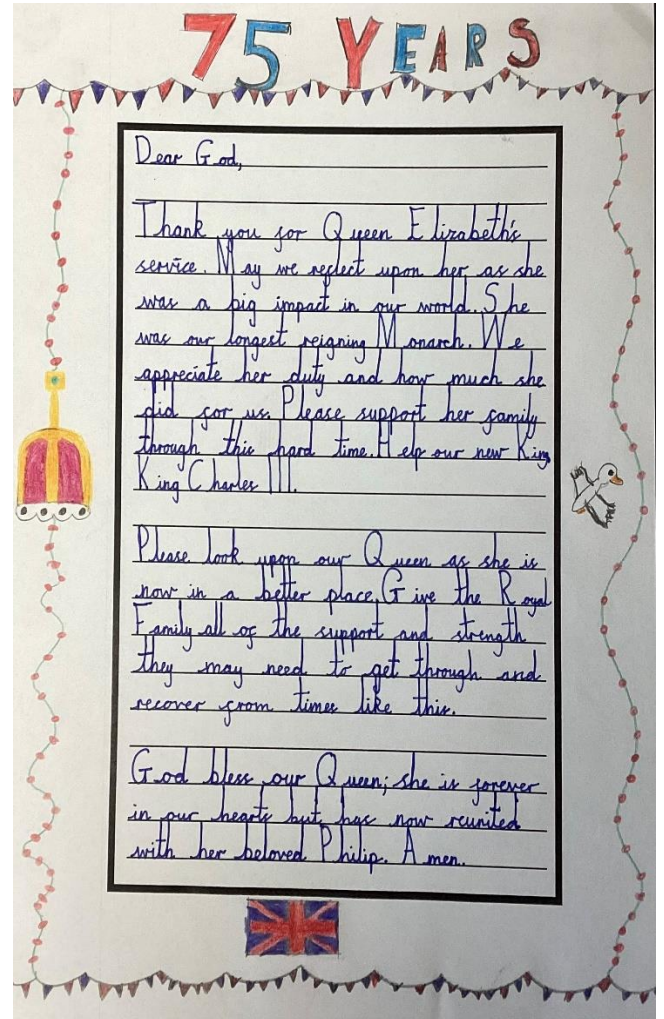 75 YEARS
Dear God,
Thank you for Queen Elizabeth's
service. May we reflect upon her as she
was a big impact in our world. She
was our longest reigning Monarch. We
appreciate her duty and how much she
did for us. Please support her family
through this hard time. Help our new King
King Charles III.
Please look upon our Queen as she is
now in a better place. Give the Royal
Family all of the support and strength
they may need to get through and
recover from times like this.
God bless our Queen; she is forever
in our hearts but has now reunited
with her beloved Philip. Amen.